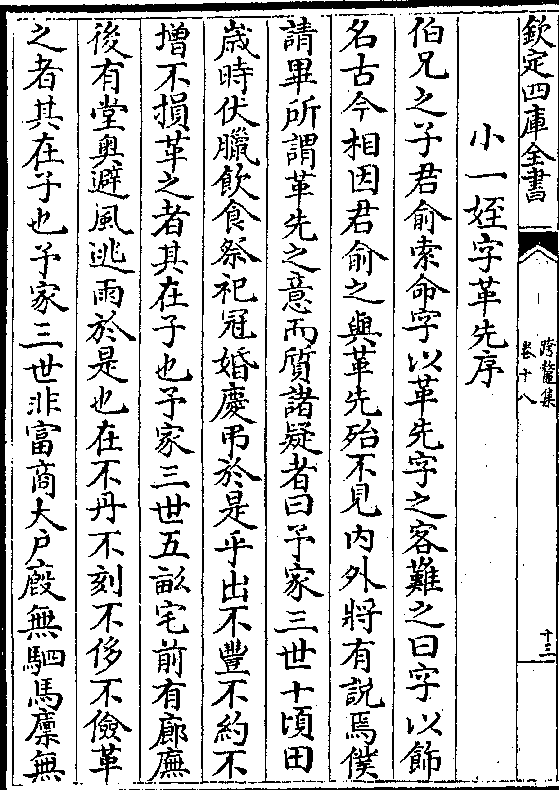 欽定四庫全書
跨鼇集
卷十八
十三
小一姪字革先序
伯兄之子君俞索命字以革先字之客難之曰字以飾
名古今相因君俞之與革先殆不見內外將有説焉僕
請畢所謂革先之意而質諸疑者曰予家三世十頃田
嵗時伏臘飲食祭祀冠婚慶弔於是乎出不豐不約不
增不損革之者其在子也予家三世五畝宅前有廊廡
後有堂奥避風逃雨於是也在不丹不刻不侈不儉革
之者其在子也予家三世非富商大户廏無駟馬廩無